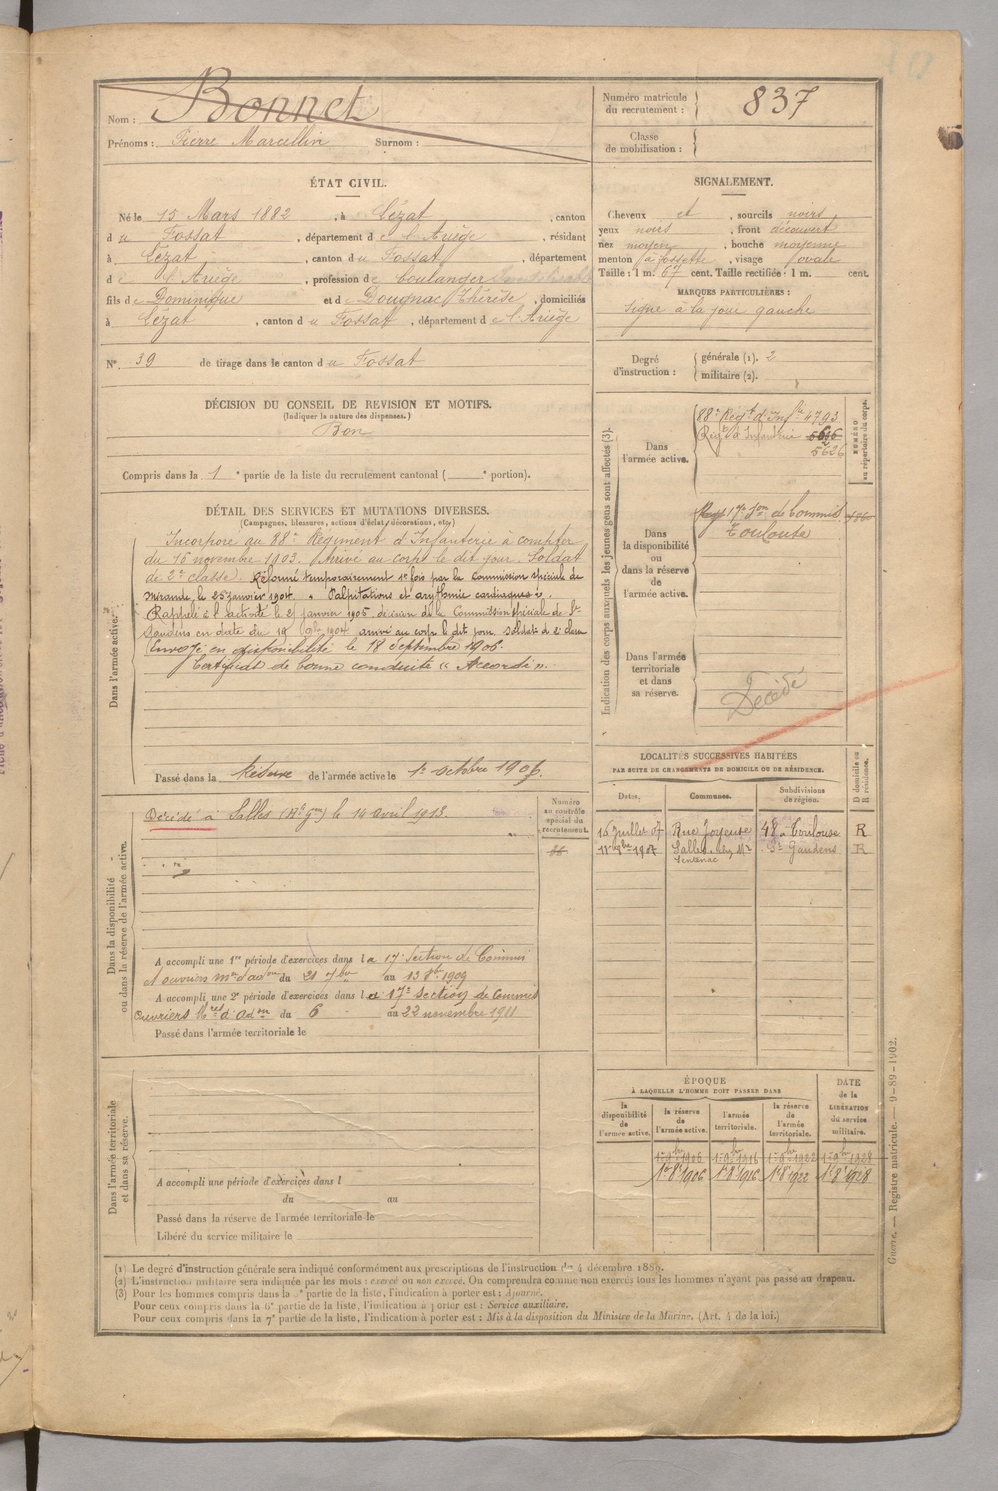 Nom : Bonnet
Prénoms : Pierre Marcellin Surnom :
Numéro matricule du recrutement : 837
Classe de mobilisation :
ÉTAT CIVIL.
Né le 15 Mars 1882, à Lézat, canton
du Fossat, département de l'Ariège, résidant
à Lézat, canton du Fossat, département
de l'Ariège, profession de boulanger
fils de Dominique et de Dougnac Thérèse, domiciliés
à Lézat, canton du Fossat, département de l'Ariège
N° 39 de tirage dans le canton du Fossat
SIGNALEMENT.
Cheveux et, sourcils noirs
yeux noirs, front découvert
nez moyen, bouche moyenne
menton à fossette, visage ovale
Taille : 1 m. 67 cent. Taille rectifiée : 1 m. cent.
MARQUES PARTICULIÈRES :
Signe à la joue gauche
Degré d'instruction : générale (1). 2
militaire (2).
DÉCISION DU CONSEIL DE REVISION ET MOTIFS.
(Indiquer la nature des dispenses.)
Bon
Compris dans la 1e partie de la liste du recrutement cantonal ( e portion).
DÉTAIL DES SERVICES ET MUTATIONS DIVERSES.
(Campagnes, blessures, actions d'éclat, décorations, etc.)
Dans l'armée active.
Incorporé au 88e Régiment d'Infanterie à compter
du 16 novembre 1903. Arrivé au corps le dit jour. Soldat
de 2e classe. Réformé temporairement 1e fois par la Commission spéciale de
Mirande, le 25 janvier 1904. « Palpitations et arythmie cardiaques ».
Rappelé à l'activité le 21 janvier 1905 décision de la Commission spéciale de St
Gaudens en date du 19 9bre 1904 arrivé au corps le dit jour soldat de 2e classe
Envoyé en disponibilité le 18 Septembre 1906.
Certificat de bonne conduite « Accordé ».
Passé dans la Réserve de l'armée active le 1er octobre 1906.
Indication des corps auxquels les jeunes gens sont affectés (3).
NUMÉRO au répertoire du corps.
Dans l'armée active.
88e Régt d'Infie 4793
Régt d'Infanterie 5606
5626
Dans la disponibilité ou dans la réserve de l'armée active.
17e Son de Commis
Toulouse
Dans l'armée territoriale et dans sa réserve.
Décédé
LOCALITÉS SUCCESSIVES HABITÉES
PAR SUITE DE CHANGEMENTS DE DOMICILE OU DE RÉSIDENCE.
Dates. Communes. Subdivisions de région. D domicile ou R résidence.
15 Juillet 07 Rue Joyeuse 48 Toulouse R
1907 Salles chez Mr Ventenac St Gaudens R
Dans la disponibilité ou dans la réserve de l'armée active.
Numéro au contrôle spécial du recrutement.
Décédé à Salles (Hte Gne) le 14 avril 1913.
A accompli une 1re période d'exercices dans la 17e Section de Commis
et ouvriers mres d'adon du 21 7bre au 13 8bre 1909
A accompli une 2e période d'exercices dans la 17e Section de Commis
Ouvriers Mres d'adon du 6 au 22 novembre 1911
Passé dans l'armée territoriale le
ÉPOQUE
À LAQUELLE L'HOMME DOIT PASSER DANS
la disponibilité de l'armée active. la réserve de l'armée active. l'armée territoriale. la réserve de l'armée territoriale.
DATE de la LIBÉRATION du service militaire.
1er 8 1906 1er 8 1916 1er 8 1922 1er 8 1928
Dans l'armée territoriale et dans sa réserve.
A accompli une période d'exercices dans l
du au
Passé dans la réserve de l'armée territoriale le
Libéré du service militaire le
(1) Le degré d'instruction générale sera indiqué conformément aux prescriptions de l'instruction du 4 décembre 1889.
(2) L'instruction militaire sera indiquée par les mots : exercé ou non exercé. On comprendra comme non exercés tous les hommes n'ayant pas passé au drapeau.
(3) Pour les hommes compris dans la 5e partie de la liste, l'indication à porter est : Ajourné.
Pour ceux compris dans la 6e partie de la liste, l'indication à porter est : Service auxiliaire.
Pour ceux compris dans la 7e partie de la liste, l'indication à porter est : Mis à la disposition du Ministre de la Marine. (Art. 4 de la loi.)
Guerre. — Registre matricule. — 9-89-1902.